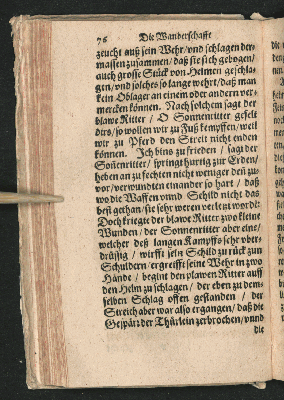 76 Die Wanderschafft
zeucht auß sein Wehr/ vnd schlagen der-
massen zusammen/ daß sie sich gebogen/
auch grosse Stück von Helmen geschla-
gen/ vnd solches so lange wehrt/ daß man
kein Oblager an einem oder andern ver-
mercken können. Nach solchem sagt der
blawe Ritter/ O Sonnenritter gefelt
dirs/ so wollen wir zu Fuß kempffen/ weil
wir zu Pferd den Streit nicht enden
können. Ich bins zu frieden/ sagt der
Soñenritter/ springt hurtig zur Erden/
heben an zu fechten nicht weniger deñ zu-
vor/ verwundten einander so hart/ daß
wo die Waffen vnnd Schild nicht das
best gethan/ sie sehr weren verletzt worde:
Doch kriegte der blawe Ritter zwo kleine
Wunden/ der Sonnenritter aber eine/
welcher deß langen Kampffs sehr vber-
drüssig/ wirfft sein Schild zu rück zun
Schuldern/ ergreifft seine Wehr in zwo
Hände/ begint den plawen Ritter auff
den Helm zu schlagen/ der eben zu dem-
selben Schlag offen gestanden/ der
Streich aber war also ergangen/ daß die
Gespärz der Thürlein zerbrochen/ vnnd
die